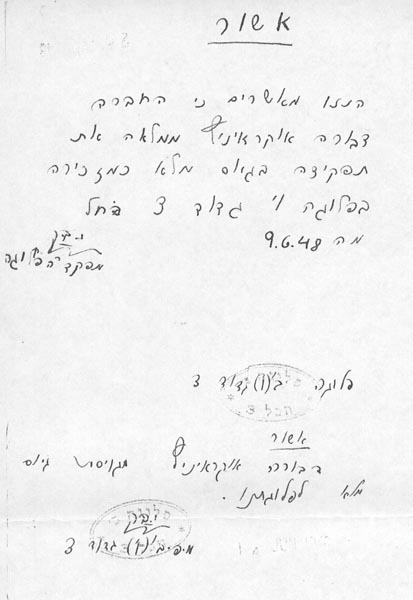 אשור
הננו מאשרים כי החברה
דבורה אוקראיניץ ממלאה את
תפקידה בגיוס מלא כמזכירה
בפלוגה ו' גדוד 3 החל
מה 9.6.48
מפקד הפלוגה
פלוגה ב'(ו) גדוד 3
אשור
דבורה אוקראיניץ מגויסת גיוס
מלא לפלוגתנו.
גדוד 3